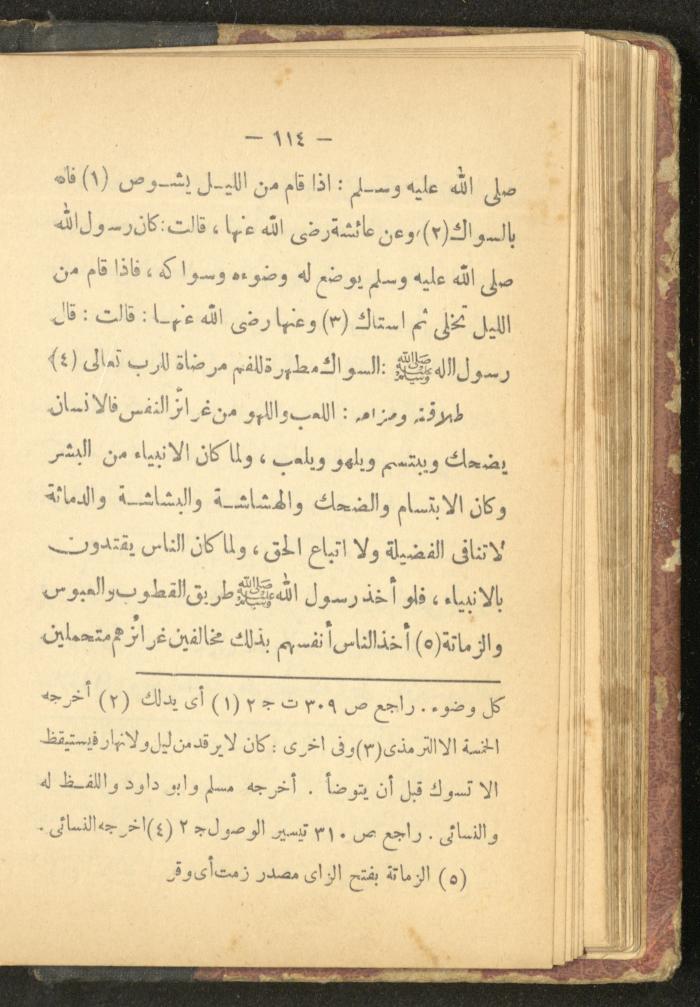 — ١١٤ —
صلى الله عليه وسلم : اذا قام من الليل يشوص (١) فاه
بالسواك (٢) ، وعن عائشة رضى الله عنها ، قالت : كان رسول الله
صلى الله عليه وسلم يوضع له وضوءه وسواكه ، فاذا قام من
الليل تخلى ثم استاك (٣) وعنها رضى الله عنها : قالت : قال
رسول الله ﷺ : السواك مطهرة للفم مرضاة للرب تعالى (٤)
طلاقته ومزاحه : اللعب واللهو من غرائز النفس فالانسان
يضحك ويبتسم ويلهو ويلعب ، ولما كان الانبياء من البشر
وكان الابتسام والضحك والهشاشة والبشاشة والدماثة
لا تنافى الفضيلة ولا اتباع الحق ، ولما كان الناس يقتدون
بالانبياء ، فلو أخذ رسول الله ﷺ طريق القطوب والعبوس
والزماتة (٥) أخذ الناس أنفسهم بذلك مخالفين غرائزهم متحملين
كل وضوء . راجع ص ٣٠٩ ت ج ٢ (١) أى يدلك (٢) أخرجه
الخمسة الا الترمذى (٣) وفى اخرى : كان لا يرقد من ليل ولا نهار فيستيقظ
الا تسوك قبل أن يتوضأ . أخرجه مسلم وابو داود واللفظ له
والنسائى . راجع ص ٣١٠ تيسير الوصول ج ٢ (٤) اخرجه النسائى .
(٥) الزماتة بفتح الزاى مصدر زمت أى وقر